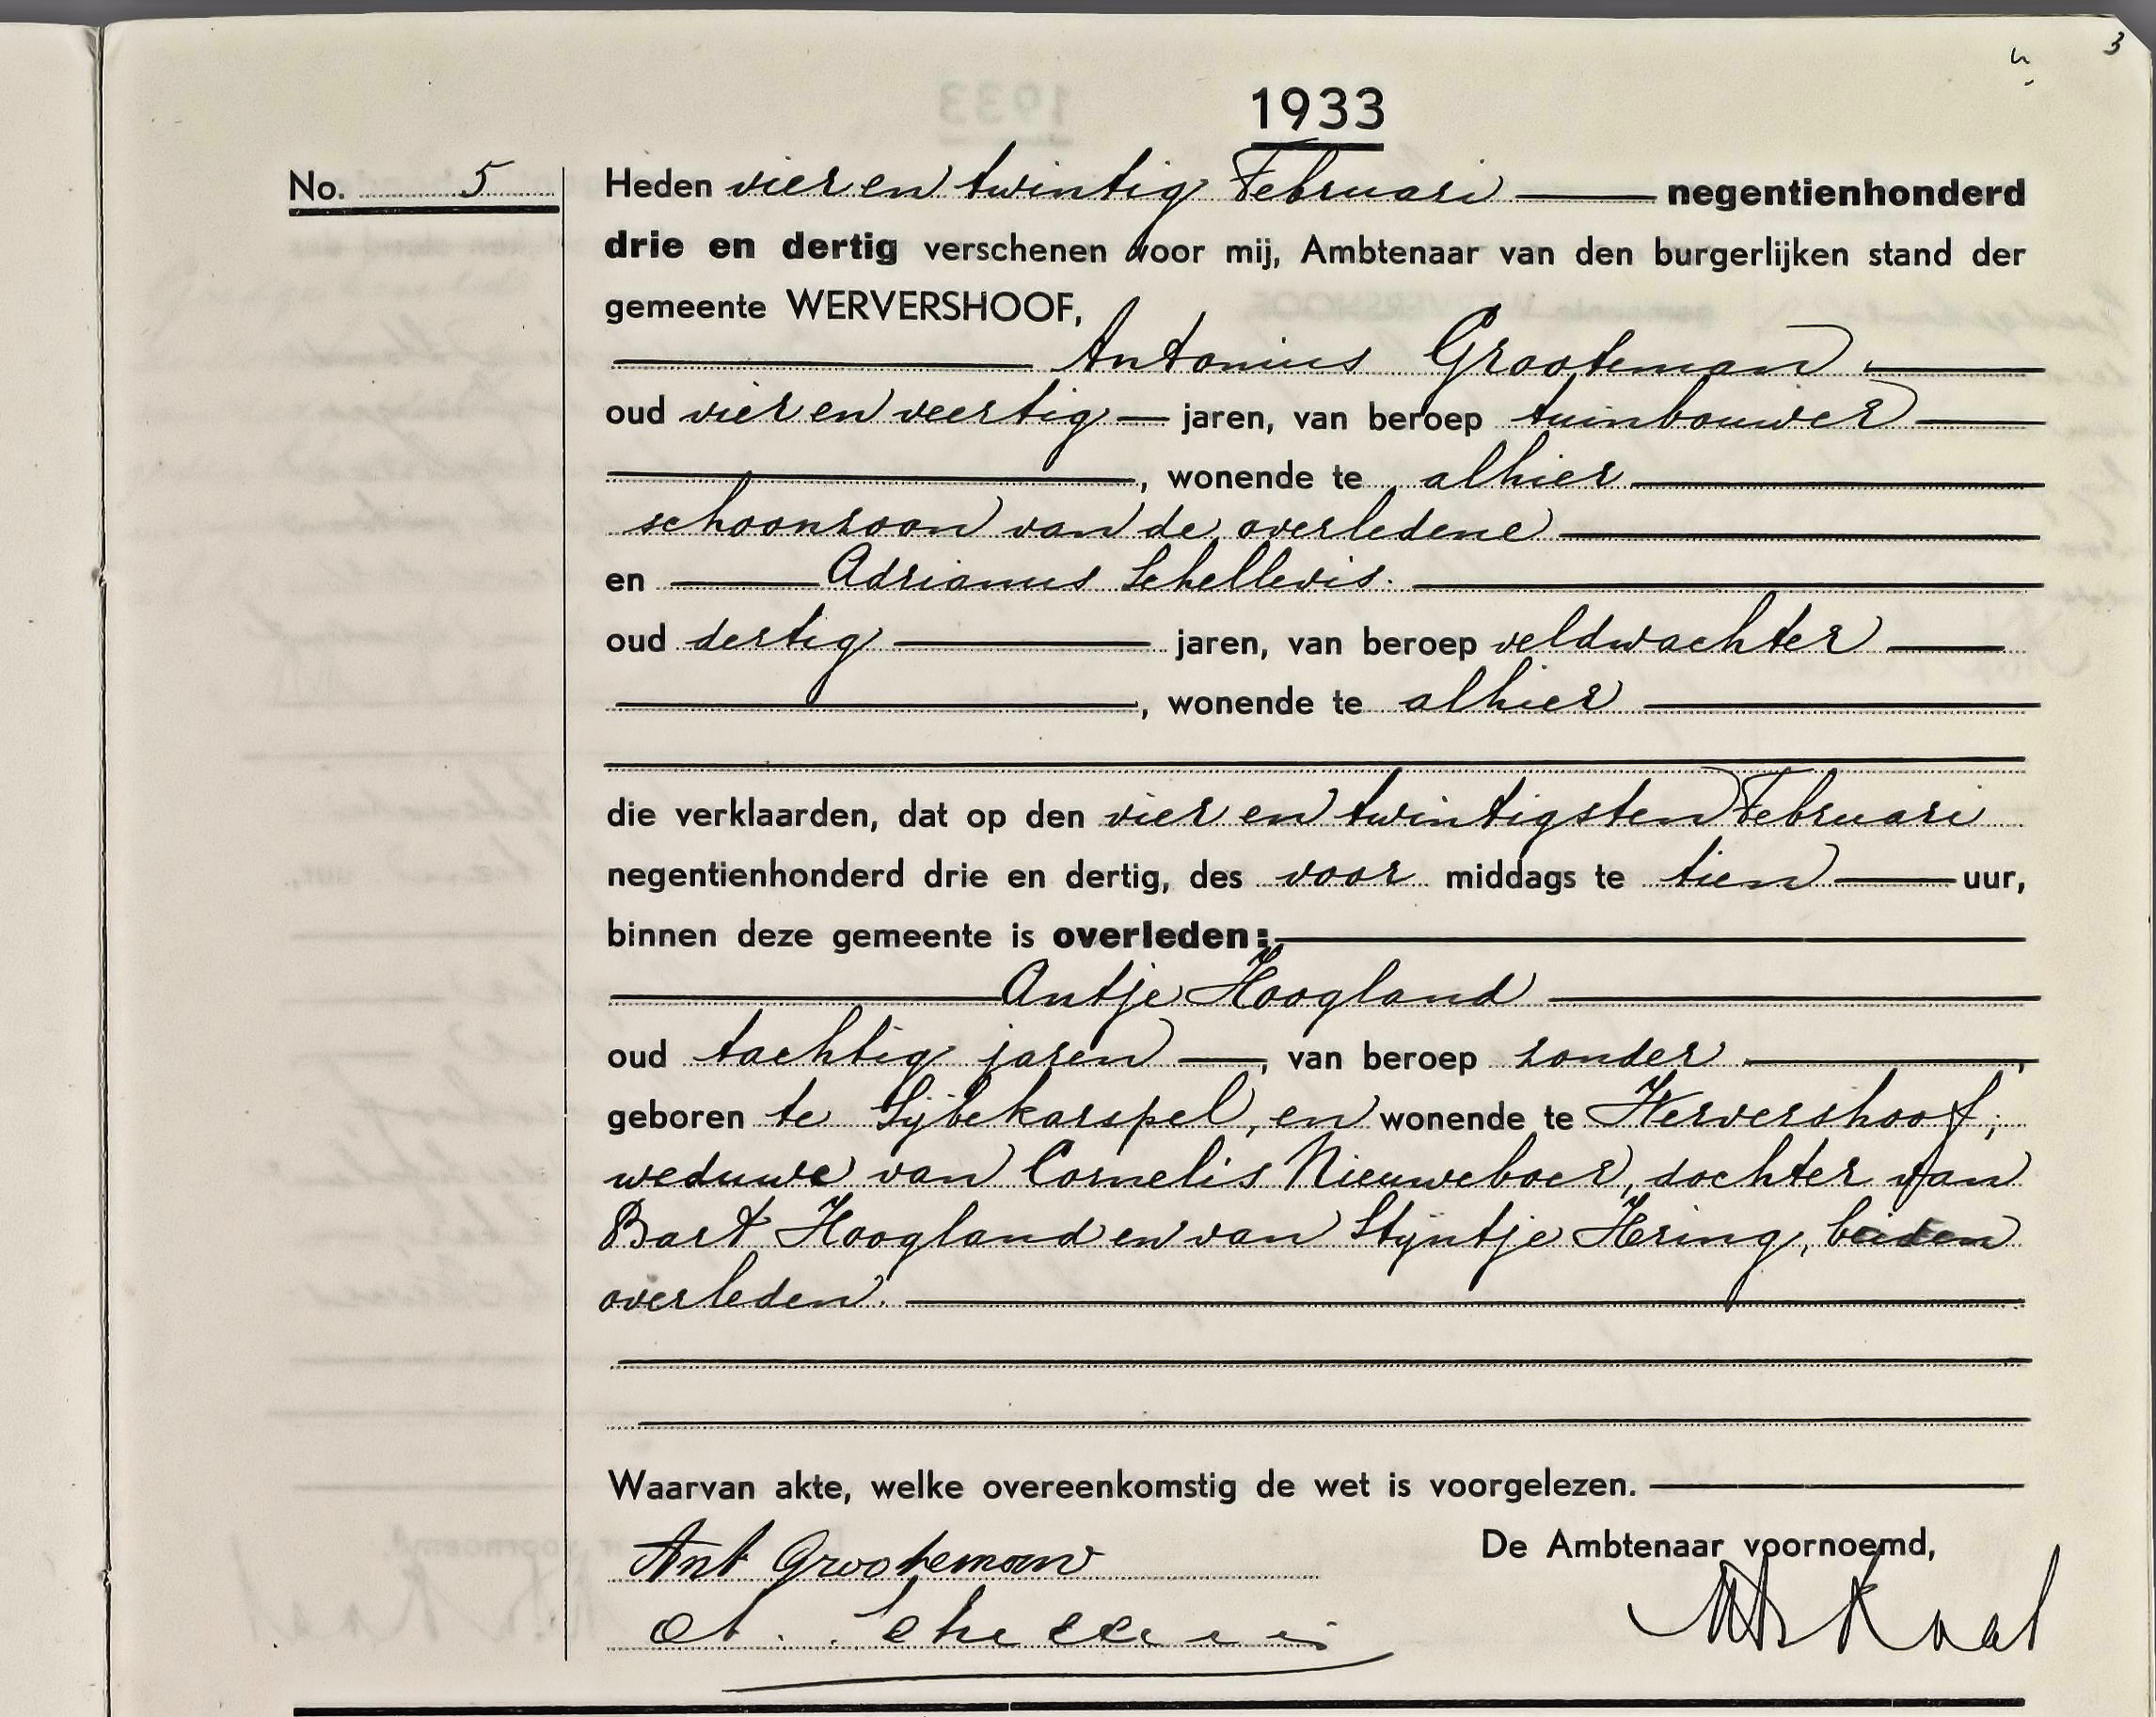 3
1933
No. 5
Heden vier en twintig Februari negentienhonderd
drie en dertig verschenen voor mij, Ambtenaar van den burgerlijken stand der
gemeente WERVERSHOOF,
Antonius Grooteman
oud vier en veertig jaren, van beroep tuinbouwer
, wonende te alhier
schoonzoon van de overledene
en Adrianus Schellevis.
oud dertig jaren, van beroep veldwachter
, wonende te alhier
die verklaarden, dat op den vier en twintigsten Februari
negentienhonderd drie en dertig, des voor middags te tien uur,
binnen deze gemeente is overleden:
Antje Hoogland
oud tachtig jaren, van beroep zonder,
geboren te Sijbekarspel, en wonende te Wervershoof;
weduwe van Cornelis Nieuweboer, dochter van
Bart Hoogland en van Stijntje Hering, beiden
overleden.
Waarvan akte, welke overeenkomstig de wet is voorgelezen.
De Ambtenaar voornoemd,
Ant Grooteman
A. Schellevis